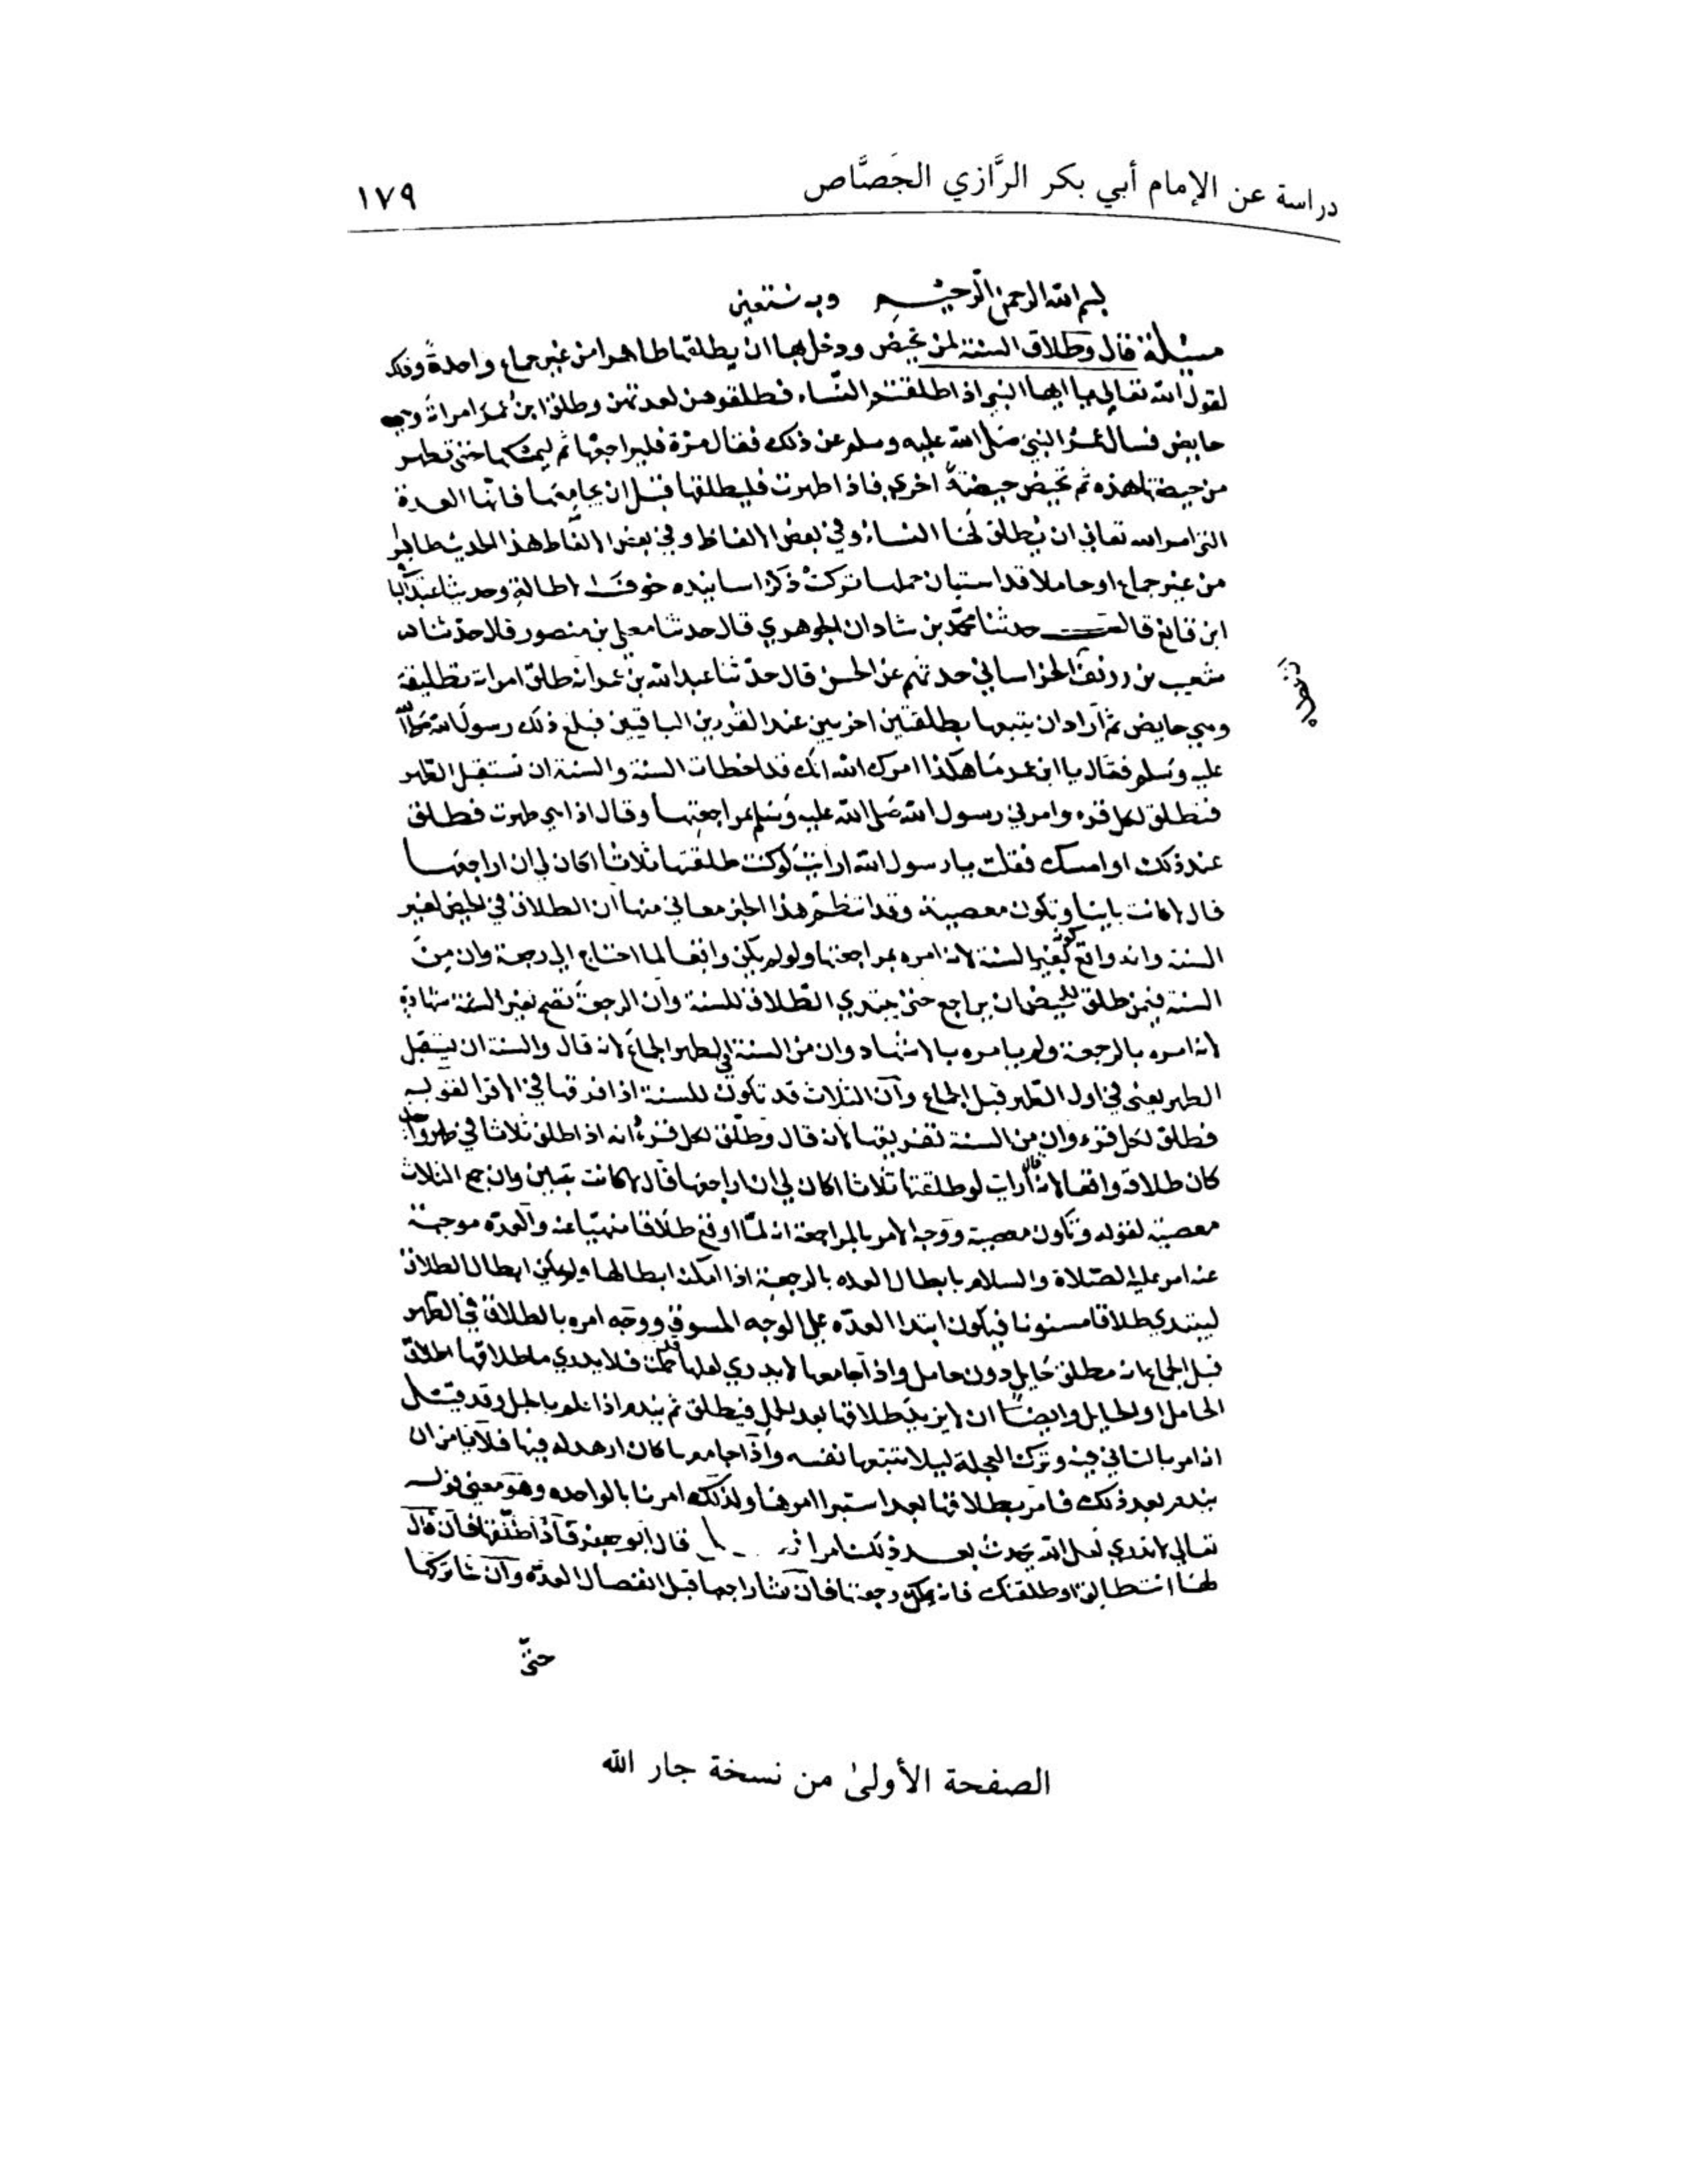 دراسة عن الإمام أبي بكر الرَّازي الجَصَّاص ١٧٩
بسم الله الرحمن الرحيم وبه نستعين
مسئلة قال وطلاق السنة لمن تحيض ودخل بها ان يطلقها طاهرا من غير جماع واحدة وذلك
لقول الله تعالى يا ايها النبي اذا طلقتم النساء فطلقوهن لعدتهن وطلق ابن عمر امراة وهي
حايض فسال عمر النبي صلى الله عليه وسلم عن ذلك فقال مرة فليراجعها ثم ليمسكها حتى تطهر
من حيضتها هذه ثم تحيض حيضة اخرى فاذا طهرت فليطلقها قبل ان يجامعها فانها العدة
التي امر الله تعالى ان يطلق لها النساء وفي بعض الالفاظ وفي بعض الفاظ هذا الحديث طاهرا
من غير جماع او حاملا قد استبان حملها تركت ذكر اسانيده خوف الاطالة وحدثنا عبد الباقي
ابن قانع قال حدثنا محمد بن شادان الجوهري قال حدثنا معلى بن منصور قال حدثنا
شعيب بن رزيق الخراساني حدثهم عن الحسن قال حدثنا عبد الله بن عمر انه طلق امراته تطليقة
وهي حايض ثم اراد ان يتبعها بطلقتين اخريين عند القرين الباقيين فبلغ ذلك رسول الله صلى الله
عليه وسلم فقال يا ابن عمر ما هكذا امرك الله انك قد اخطات السنة والسنة ان تستقبل الطهر
فتطلق لكل قرء وامرني رسول الله صلى الله عليه وسلم بمراجعتها وقال اذا هي طهرت فطلق
عند ذلك او امسك فقلت يا رسول الله ارايت لو كنت طلقتها ثلاثا اكان لي ان اراجعها
قال لا كانت تبين وتكون معصية وقد انتظم هذا الخبر معاني منها ان الطلاق في الحيض لغير
السنة وانه واقع كونه لغير السنة لانه امره بمراجعتها ولو لم يكن واقعا لما احتاج الى رجعة وان من
السنة فيمن طلق للحيض ان يراجع حتى يبتدي الطلاق للسنة وان الرجعة تصح بغير شهادة
لانه امره بالرجعة ولم يامره بالاشهاد وان من السنة في الطهر الجماع لانه قال والسنة ان يستقبل
الطهر يعني في اول الطهر قبل الجماع وان الثلاث قد تكون للسنة اذا فرقها في الاقرا لقوله
فطلق لكل قرء وان من السنة تفريقها لانه قال وطلق لكل قرء انه اذا طلق ثلاثا في طهر واحد
كان طلاقه واقعا لانه قال ارايت لو طلقتها ثلاثا اكان لي ان اراجعها قال لا كانت تبين وان جمع الثلاث
معصية لقوله وتكون معصية ووجه الامر بالمراجعة انه لما اوقع طلاقا منهيا عنه والعدة موجبة
عنه امر عليه الصلاة والسلام بابطال العده بالرجعة اذا امكن ابطالها ولم يمكن ابطال الطلاق
ليبتدي طلاقا مسنونا فيكون ابتدا العده على الوجه المسنون ووجه امره بالطلاق في الطهر
قبل الجماع انه مطلق حايل دون حامل واذا جامعها لا يدري لعلها حملت فلا يدري ما طلاقها اطلاق
الحامل او الحايل وايضا ان لا يريد طلاقها بعد الحمل فيطلق ثم يندم اذا علم بالحبل وقد قيل
انه امر بالتاني فيه وترك العجلة ليلا تتبعها نفسه واذا جامعها كان ازهد له فيها فلا يامن ان
يندم بعد ذلك فامر بطلاقها بعد استبرا امرها ولذلك امرنا بالواحده وهو معنى قوله
تعالى لا تدري لعل الله يحدث بعد ذلك امرا قال ابو جعفر فاذا طلقها فان قال
لها انت طالق او طلقتك فانه يملك رجعتها فان شا راجعها قبل انفصال العدة وان شا تركها
حتى
الصفحة الأولىٰ من نسخة جار الله